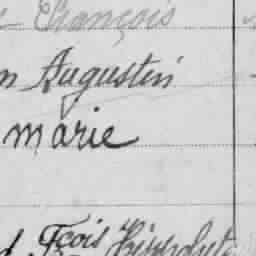 François
n Augustin
marie
Fçois Hippolyte